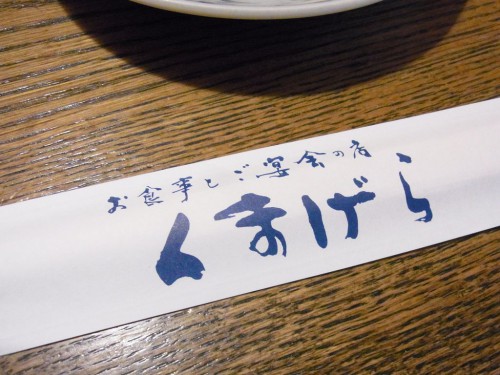 お食事とご宴会の店
くまげら